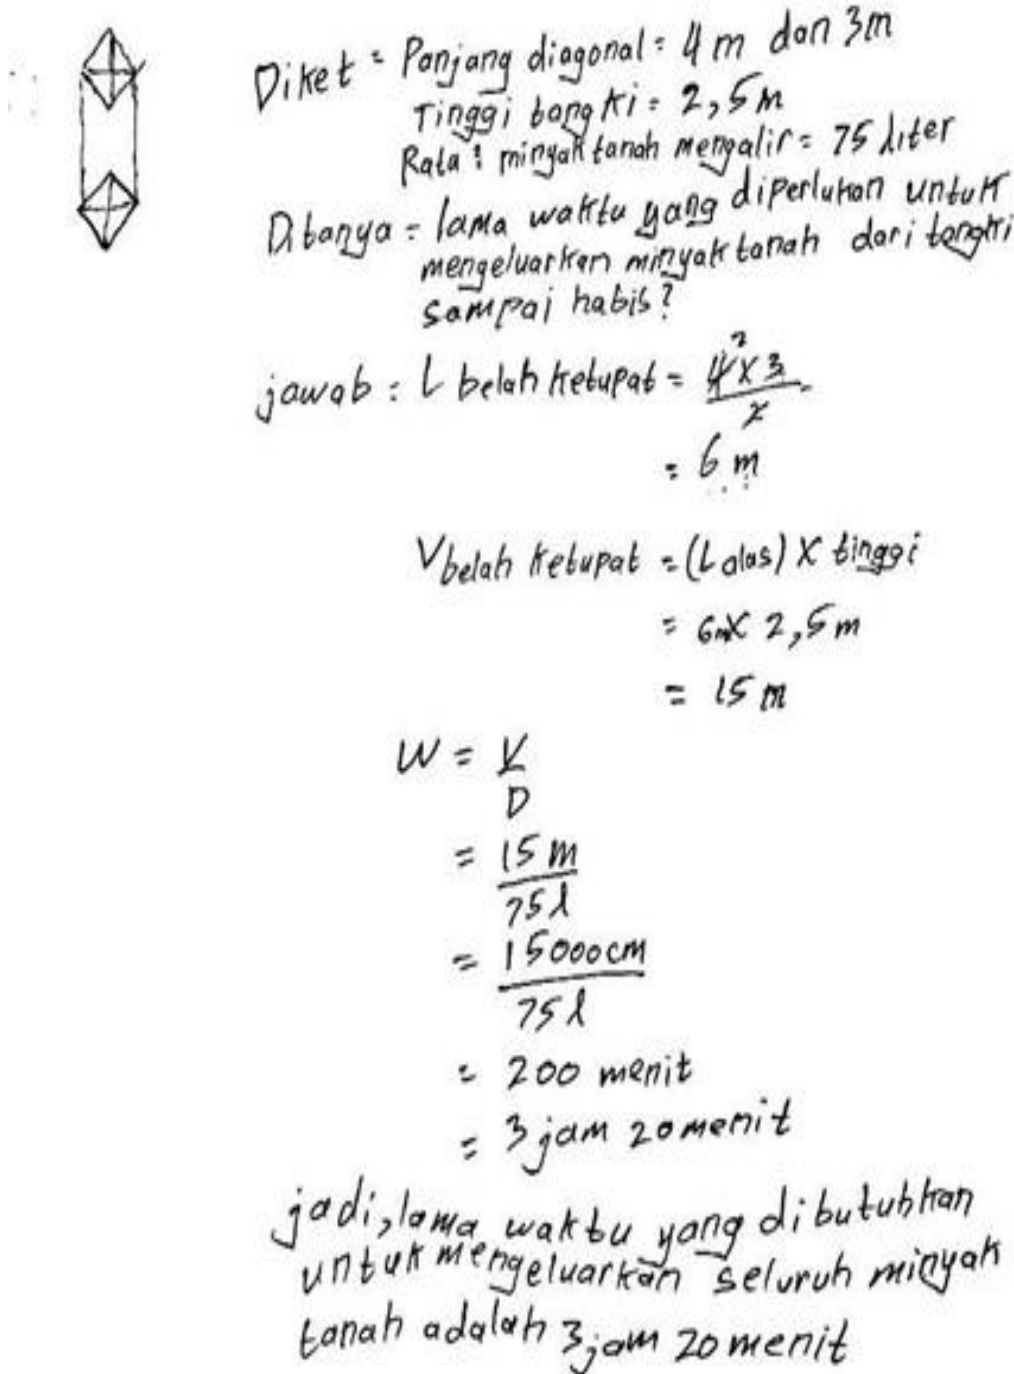 Diket = Panjang diagonal = 4 m dan 3m
Tinggi tangki = 2,5m
Rata: minyak tanah mengalir = 75 liter
Ditanya = lama waktu yang diperlukan untuk
mengeluarkan minyak tanah dari tangki
sampai habis?
jawab : L belah ketupat = 4² x 3 / 2
= 6 m
V belah ketupat = (L alas) x tinggi
= 6m x 2,5 m
= 15 m
W = V
D
= 15 m
75 l
= 15000 cm
75 l
= 200 menit
= 3 jam 20 menit
jadi, lama waktu yang dibutuhkan
untuk mengeluarkan seluruh minyak
tanah adalah 3 jam 20 menit